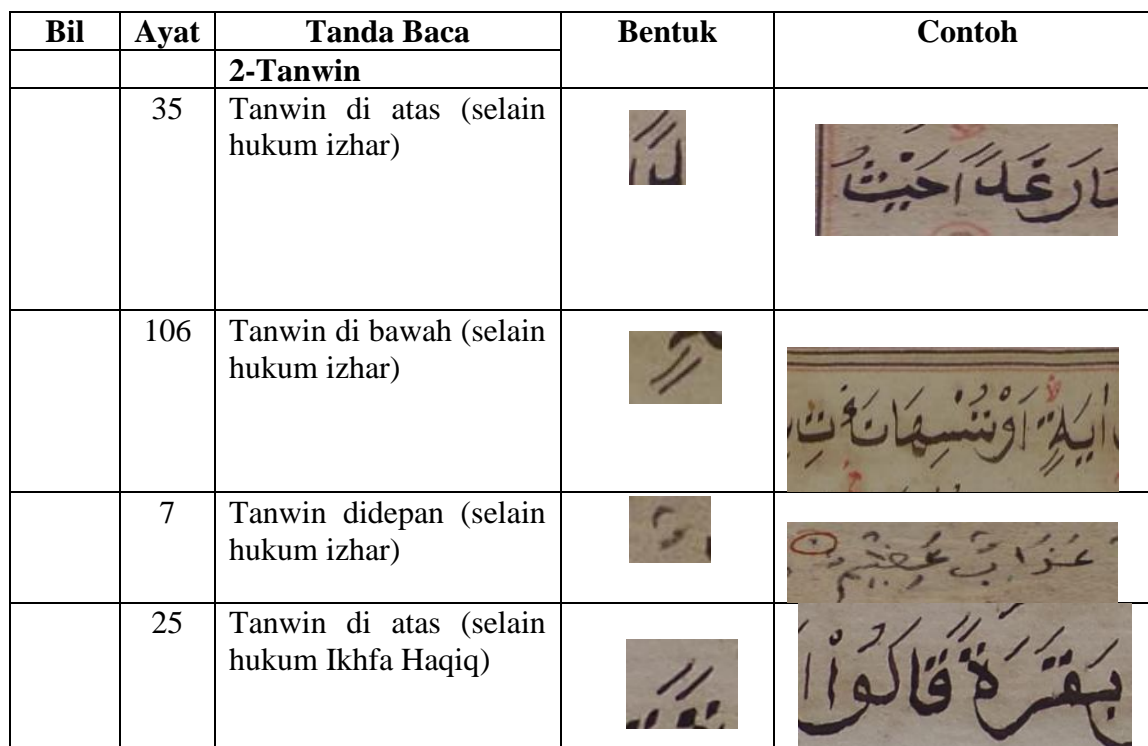 Bil Ayat Tanda Baca Bentuk Contoh
2-Tanwin
35 Tanwin di atas (selain
hukum izhar)
رَغَدًا حَيْثُ
106 Tanwin di bawah (selain
hukum izhar)
اٰيَةٍ اَوْ نُنْسِهَا نَأْتِ
7 Tanwin didepan (selain
hukum izhar)
عَذَابٌ عَظِيْمٌ
25 Tanwin di atas (selain
hukum Ikhfa Haqiq)
بَقَرَةً قَالُوْا